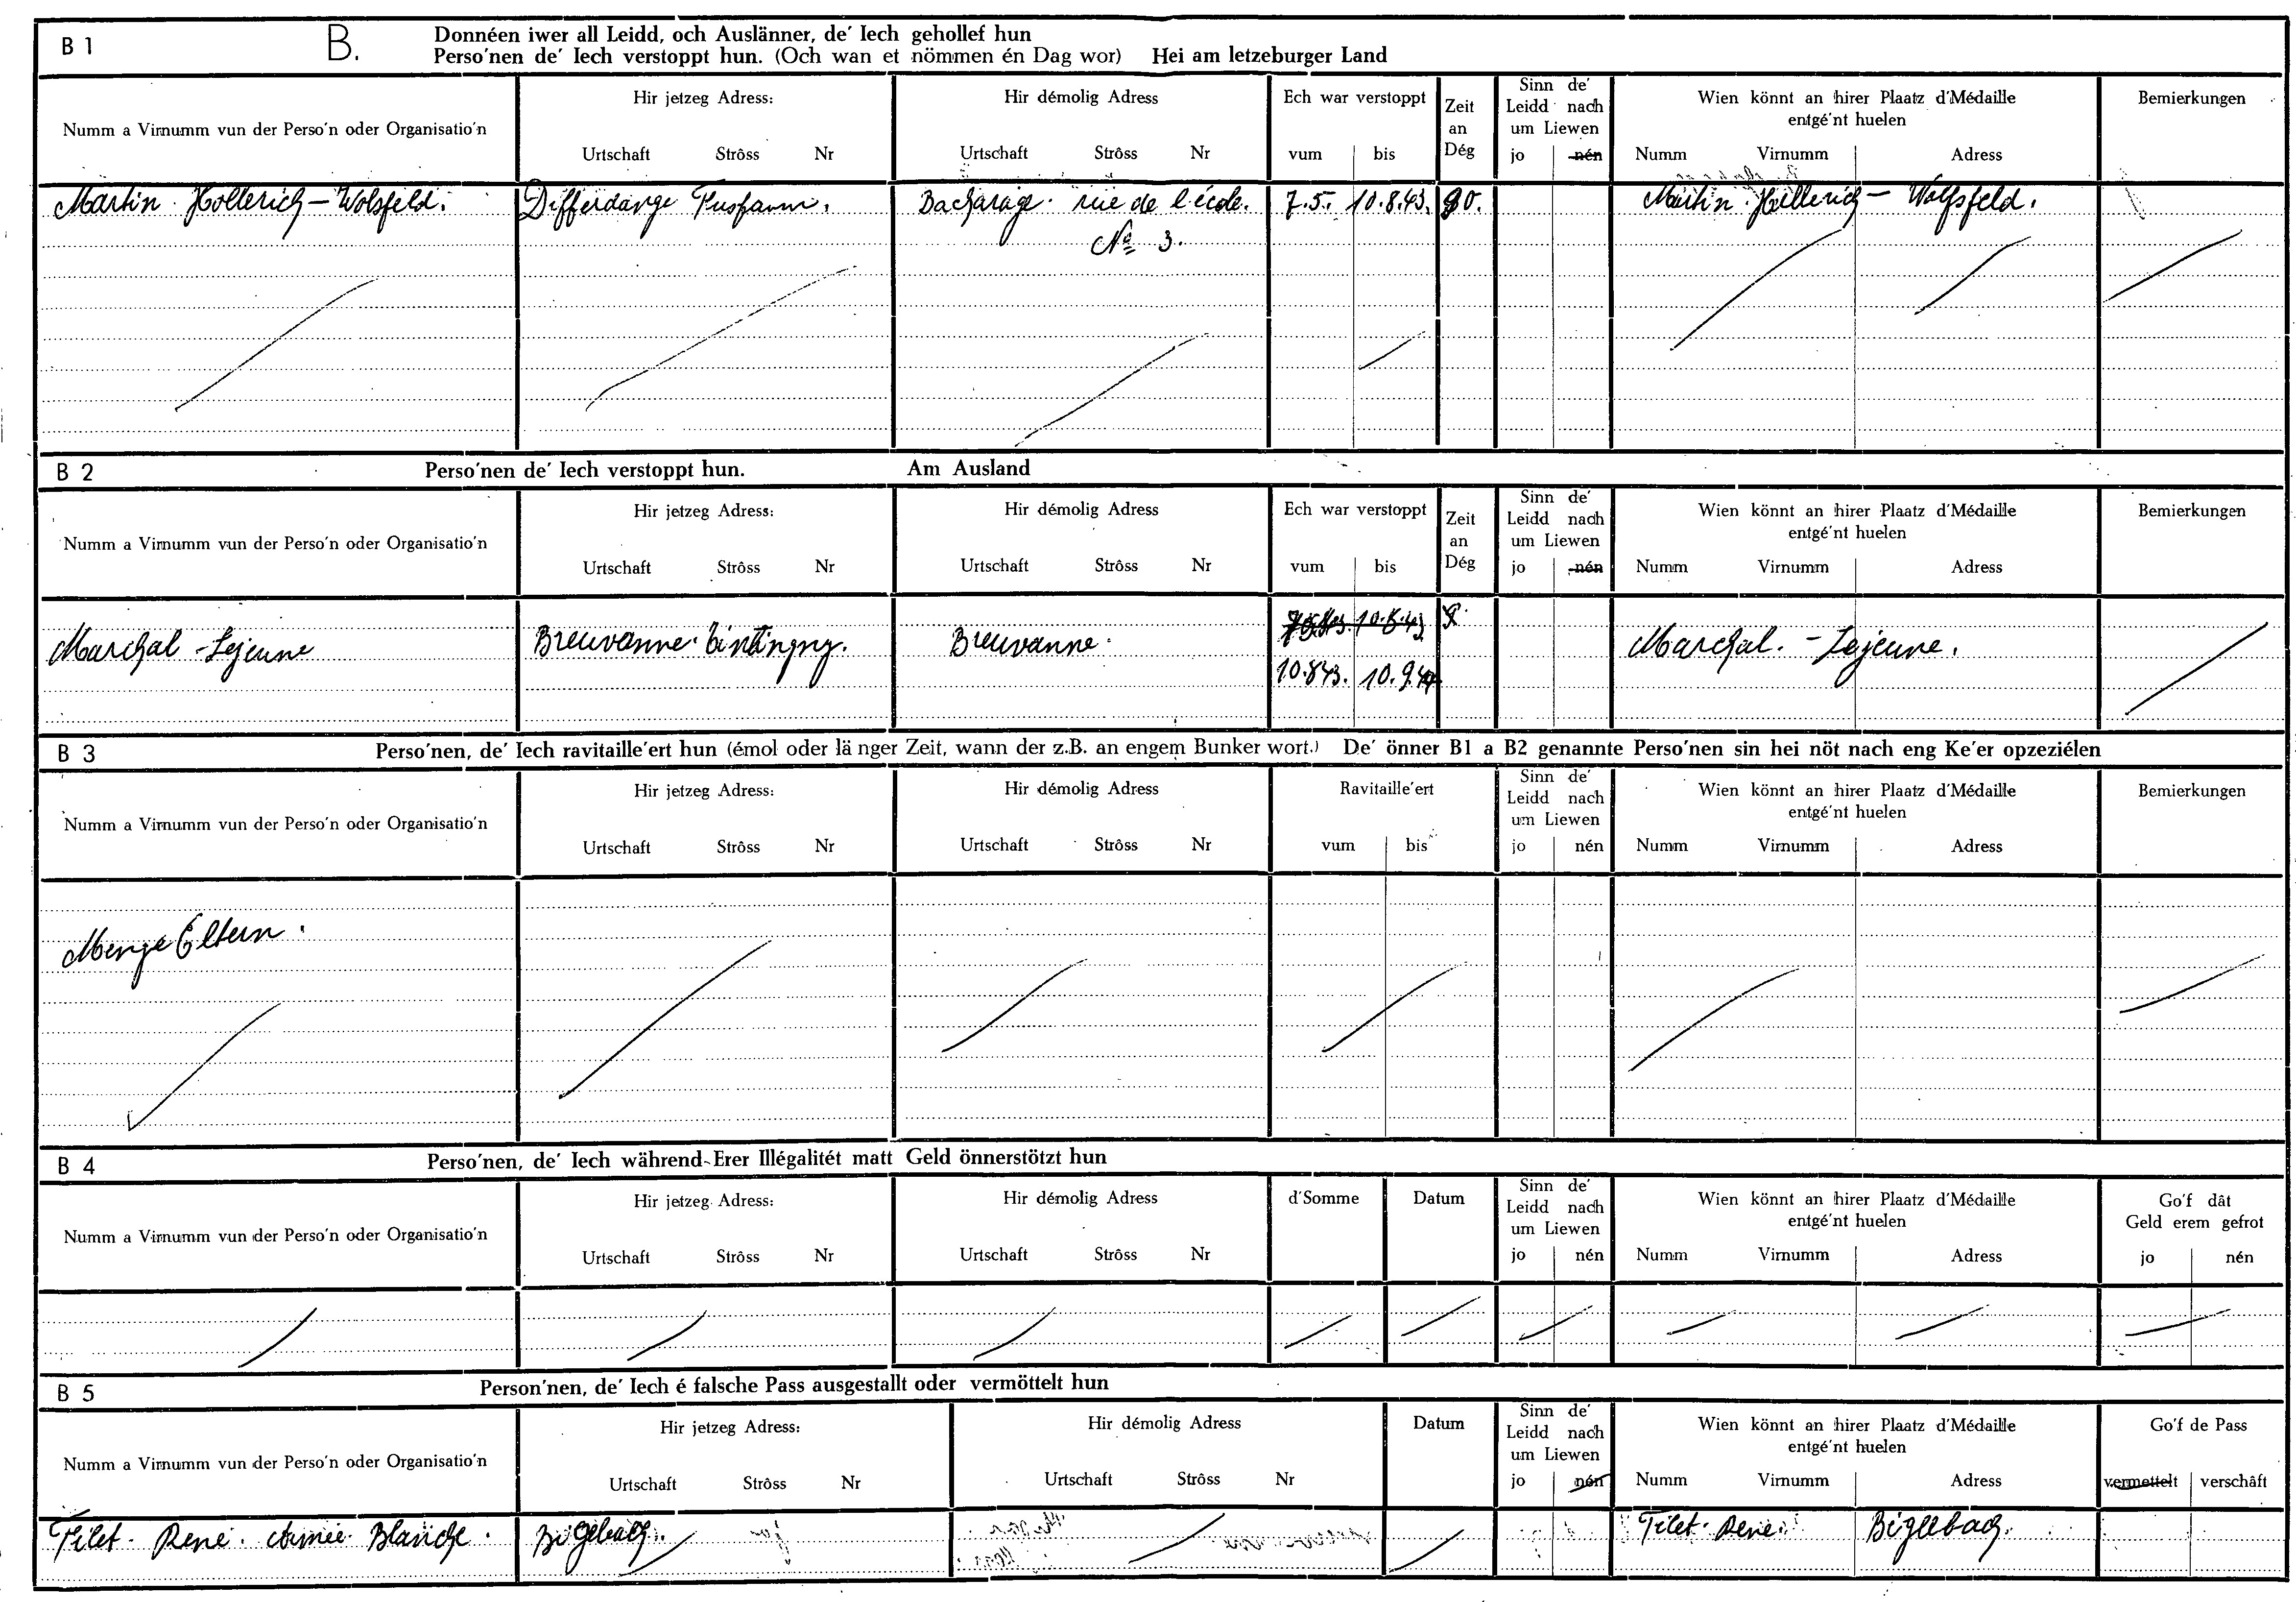 B 1 B. Donnéen iwer all Leidd, och Auslänner, de' Iech gehollef hun
Perso'nen de' Iech verstoppt hun. (Och wan et nömmen én Dag wor) Hei am letzeburger Land
Numm a Virnumm vun der Perso'n oder Organisatio'n
Hir jetzeg Adress:
Urtschaft Strôss Nr
Hir démolig Adress
Urtschaft Strôss Nr
Ech war verstoppt
vum bis
Zeit
an
Dég
Sinn de'
Leidd nach
um Liewen
jo nén
Wien könnt an hirer Plaatz d'Médaille
entgé'nt huelen
Numm Virnumm Adress
Bemierkungen
Martin Hollerich - Wolsfeld. Differdange Bascharage. rue de l'école. 7.5. 10.8.43. 90. Martin Hollerich - Wolfsfeld.
No 3.
B 2 Perso'nen de' Iech verstoppt hun. Am Ausland
Numm a Virnumm vun der Perso'n oder Organisatio'n
Hir jetzeg Adress:
Urtschaft Strôss Nr
Hir démolig Adress
Urtschaft Strôss Nr
Ech war verstoppt
vum bis
Zeit
an
Dég
Sinn de'
Leidd nach
um Liewen
jo nén
Wien könnt an hirer Plaatz d'Médaille
entgé'nt huelen
Numm Virnumm Adress
Bemierkungen
10.8.43
Marchal - Lejeune Breuvanne. Breuvanne. Marchal. - Lejeune.
10.843. 10.9.44
B 3 Perso'nen, de' Iech ravitaille'ert hun (émol oder länger Zeit, wann der z.B. an engem Bunker wort.) De' önner B1 a B2 genannte Perso'nen sin hei nöt nach eng Ke'er opzeziélen
Numm a Virnumm vun der Perso'n oder Organisatio'n
Hir jetzeg Adress:
Urtschaft Strôss Nr
Hir démolig Adress
Urtschaft Strôss Nr
Ravitaille'ert
vum bis
Sinn de'
Leidd nach
um Liewen
jo nén
Wien könnt an hirer Plaatz d'Médaille
entgé'nt huelen
Numm Virnumm Adress
Bemierkungen
Menge Eltern.
B 4 Perso'nen, de' Iech während Erer Illégalitét matt Geld önnerstötzt hun
Numm a Virnumm vun der Perso'n oder Organisatio'n
Hir jetzeg Adress:
Urtschaft Strôss Nr
Hir démolig Adress
Urtschaft Strôss Nr
d'Somme Datum
Sinn de'
Leidd nach
um Liewen
jo nén
Wien könnt an hirer Plaatz d'Médaille
entgé'nt huelen
Numm Virnumm Adress
Go'f dât
Geld erem gefrot
jo nén
B 5 Person'nen, de' Iech é falsche Pass ausgestallt oder vermöttelt hun
Numm a Virnumm vun der Perso'n oder Organisatio'n
Hir jetzeg Adress:
Urtschaft Strôss Nr
Hir démolig Adress
Urtschaft Strôss Nr
Datum
Sinn de'
Leidd nach
um Liewen
jo nén
Wien könnt an hirer Plaatz d'Médaille
entgé'nt huelen
Numm Virnumm Adress
Go'f de Pass
vermettelt verschâft
Filet. René. Aimée Blanche. Bigelbach. Filet. René. Bigelbach.